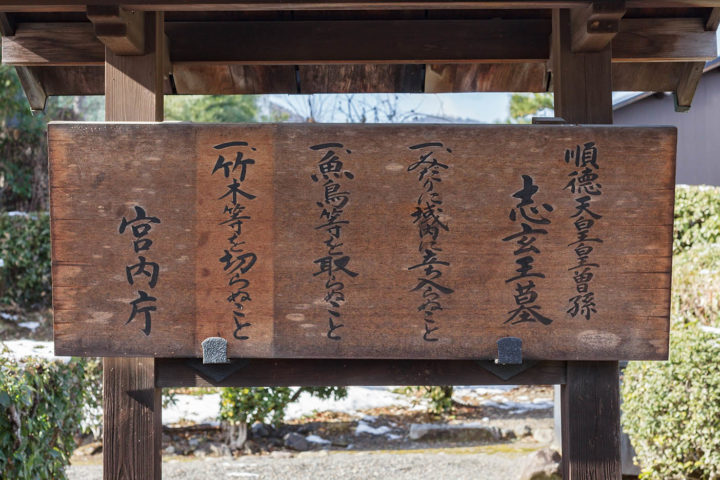 順德天皇曽孫
志玄王墓
一、みだりに域内に立入らぬこと
一、魚鳥等を取らぬこと
一、竹木等を切らぬこと
宮内庁